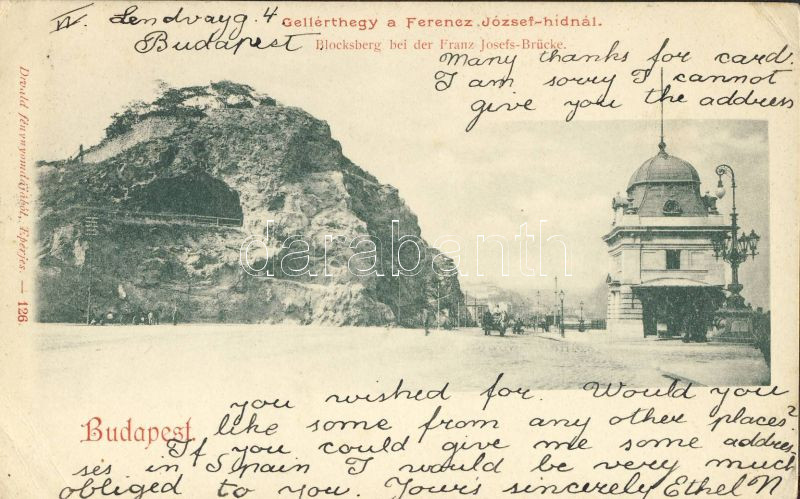 IV. Lendvayg. 4
Budapest
Gellérthegy a Ferencz József-hidnál.
Blocksberg bei der Franz Josefs-Brücke.
Many thanks for card.
I am sorry I cannot
give you the address
Divald fénynyomdájából, Eperjes. — 126
darabanth.com
you wished for. Would you
like some from any other places?
Budapest.
If you could give me some addres-
ses in Spain I would be very much
obliged to you. Yours sincerely Ethel N